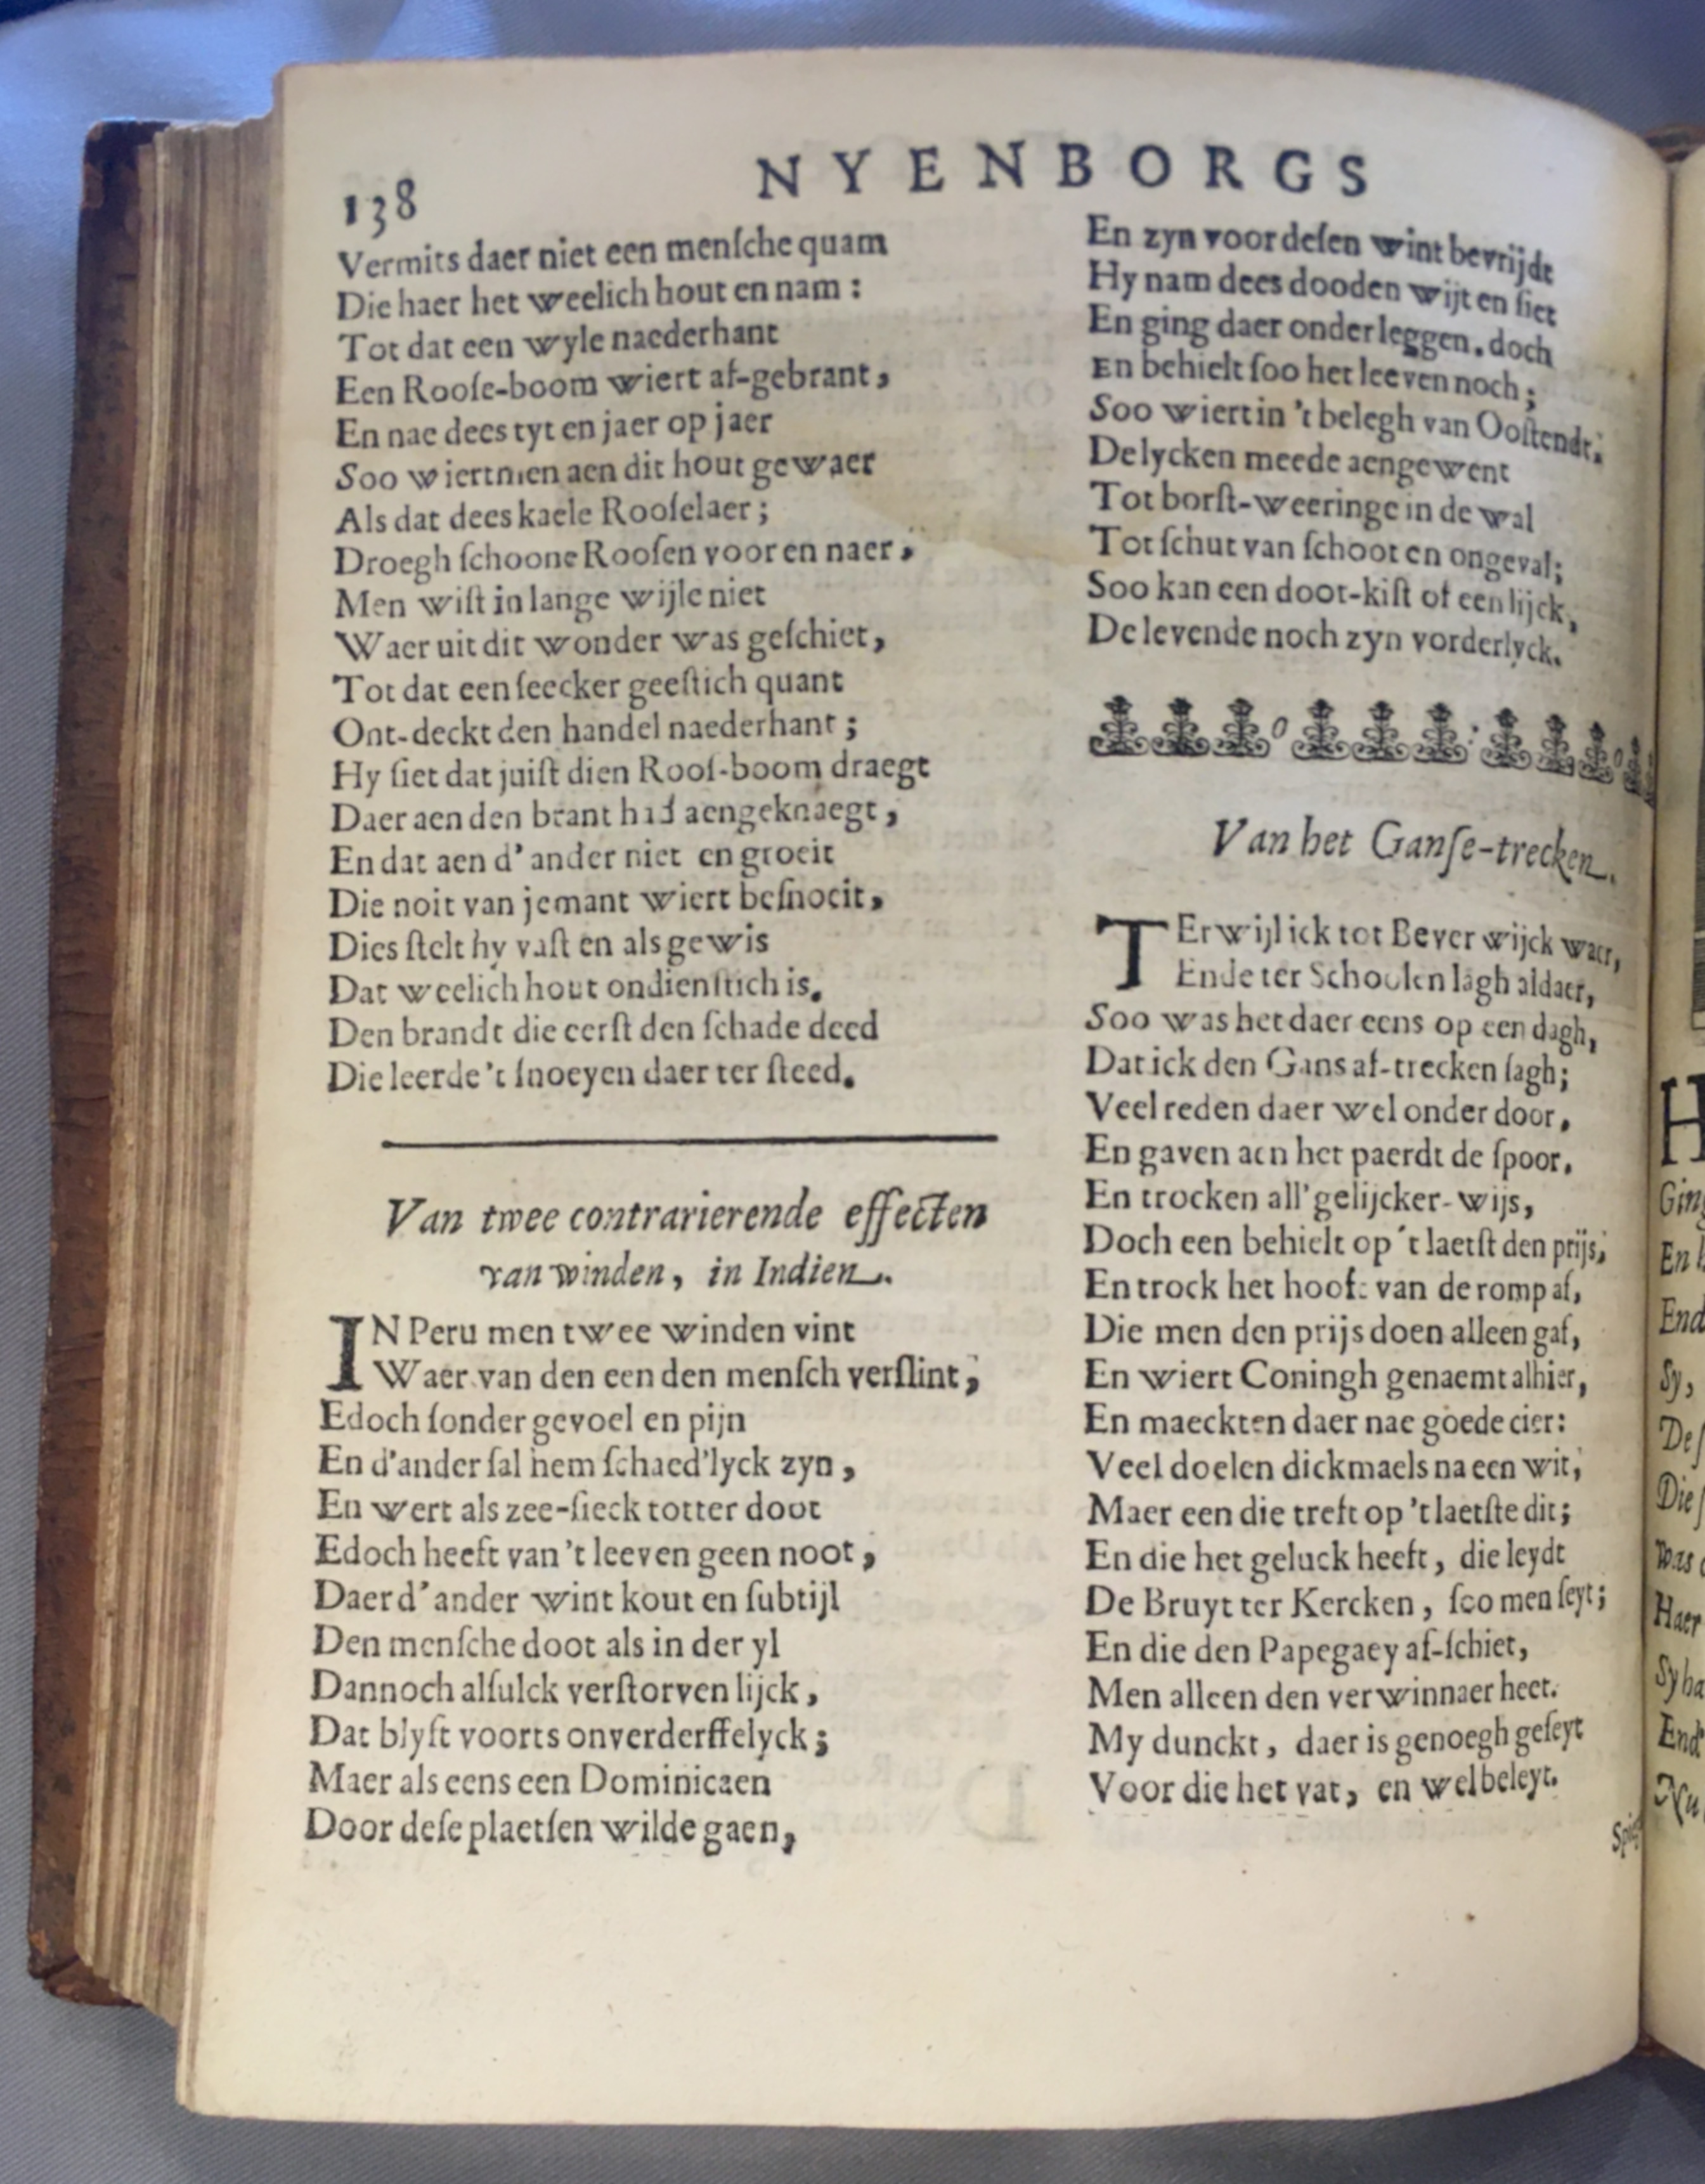 138
NYENBORGS
Vermits daer niet een menſche quam
Die haer het weelich hout en nam :
Tot dat een wyle naederhant
Een Rooſe-boom wiert af-gebrant,
En nae dees tyt en jaer op jaer
Soo wiertmen aen dit hout gewaer
Als dat dees kaele Rooſelaer ;
Droegh ſchoone Rooſen voor en naer,
Men wiſt in lange wijle niet
Waer uit dit wonder was geſchiet,
Tot dat een ſeecker geeſtich quant
Ont-deckt den handel naederhant ;
Hy ſiet dat juiſt dien Rooſ-boom draegt
Daer aen den brant had aengeknaegt,
En dat aen d' ander niet en groeit
Die noit van jemant wiert beſnoeit,
Dies ſtelt hy vaſt en als gewis
Dat weelich hout ondienſtich is.
Den brandt die eerſt den ſchade deed
Die leerde 't ſnoeyen daer ter ſteed.
Van twee contrarierende effecten
van winden, in Indien.
IN Peru men twee winden vint
Waer van den een den menſch verſlint,
Edoch ſonder gevoel en pijn
En d'ander ſal hem ſchaed'lyck zyn,
En wert als zee-ſieck totter doot
Edoch heeft van 't leeven geen noot,
Daer d' ander wint kout en ſubtijl
Den menſche doot als in der yl
Dannoch alſulck verſtorven lijck,
Dat blyft voorts onverderffelyck ;
Maer als eens een Dominicaen
Door deſe plaetſen wilde gaen,
En zyn voor deſen wint bevrijdt
Hy nam dees dooden wijt en ſiet
En ging daer onder leggen. doch
En behielt ſoo het leeven noch ;
Soo wiert in 't belegh van Ooſtendt;
De lycken meede aengewent
Tot borſt-weeringe in de wal
Tot ſchut van ſchoot en ongeval;
Soo kan een doot-kiſt of een lijck,
De levende noch zyn vorderlyck.
Van het Ganſe-trecken.
TErwijl ick tot Beverwijck waer,
Ende ter Schoolen lagh aldaer,
Soo was het daer eens op een dagh,
Dat ick den Gans af-trecken ſagh;
Veel reden daer wel onder door,
En gaven aen het paerdt de ſpoor,
En trocken all' gelijcker-wijs,
Doch een behielt op 't laetſt den prijs;
En trock het hooft van de romp af,
Die men den prijs doen alleen gaf,
En wiert Coningh genaemt alhier,
En maeckten daer nae goede cier:
Veel doelen dickmaels na een wit;
Maer een die treft op 't laetſte dit;
En die het geluck heeft, die leydt
De Bruyt ter Kercken, ſoo men ſeyt;
En die den Papegaey af-ſchiet,
Men alleen den verwinnaer heet.
My dunckt, daer is genoegh geſeyt
Voor die het vat, en wel beleyt.
H
Ging
En
End
Sy,
Die
was
Haer
Sy ha
End
Nu